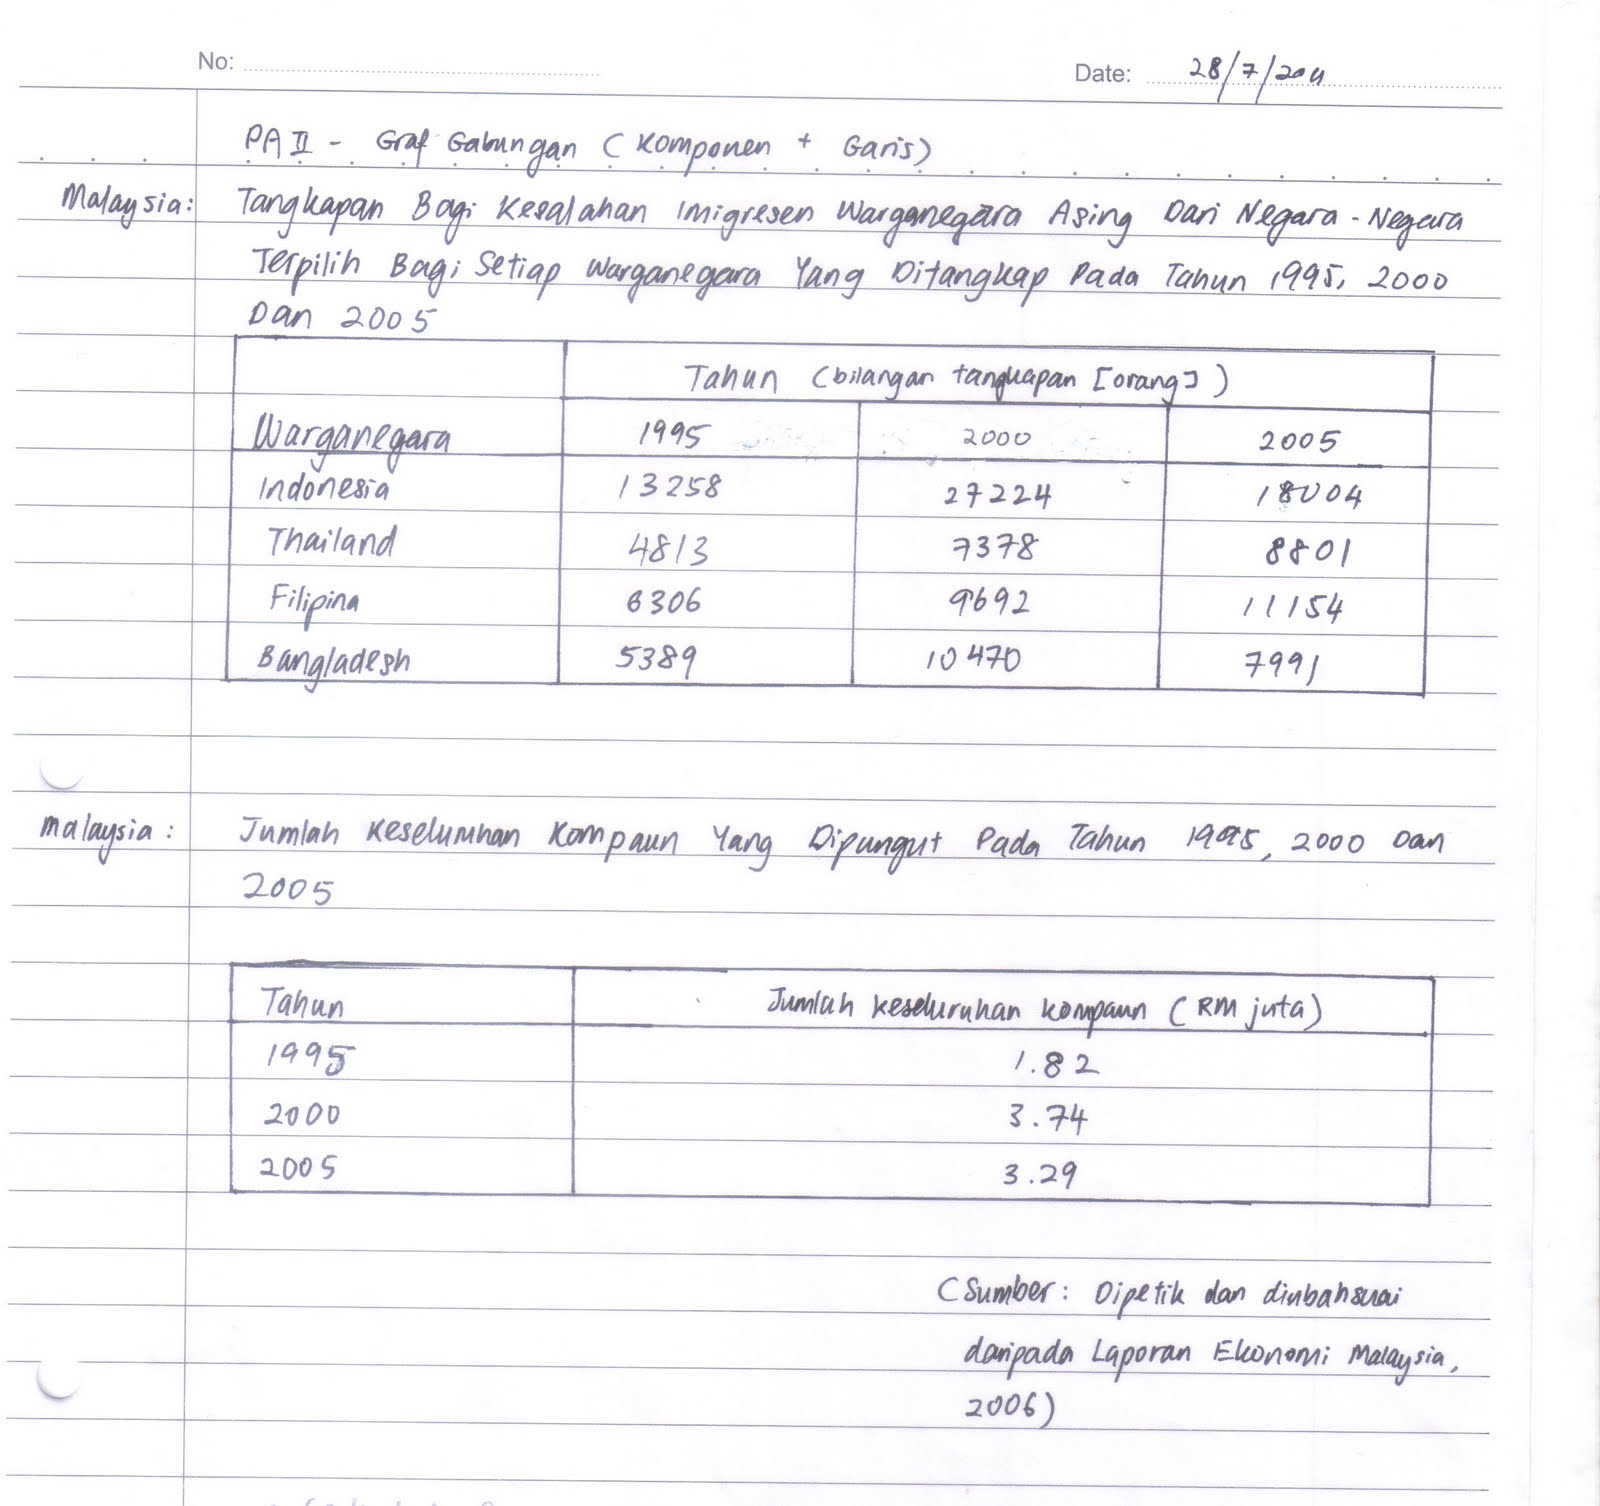 No:
Date: 28/7/2011
PA II - Graf Gabungan (Komponen + Garis)
Malaysia: Tangkapan Bagi Kesalahan Imigresen Warganegara Asing Dari Negara-Negara
Terpilih Bagi Setiap Warganegara Yang Ditangkap Pada Tahun 1995, 2000
Dan 2005
Tahun (bilangan tangkapan [orang])
Warganegara 1995 2000 2005
Indonesia 13258 27224 18004
Thailand 4813 7378 8801
Filipina 6306 9692 11154
Bangladesh 5389 10470 7991
Malaysia: Jumlah Keseluruhan Kompaun Yang Dipungut Pada Tahun 1995, 2000 Dan
2005
Tahun Jumlah keseluruhan kompaun (RM juta)
1995 1.82
2000 3.74
2005 3.29
(Sumber: Dipetik dan diubahsuai
daripada Laporan Ekonomi Malaysia,
2006)